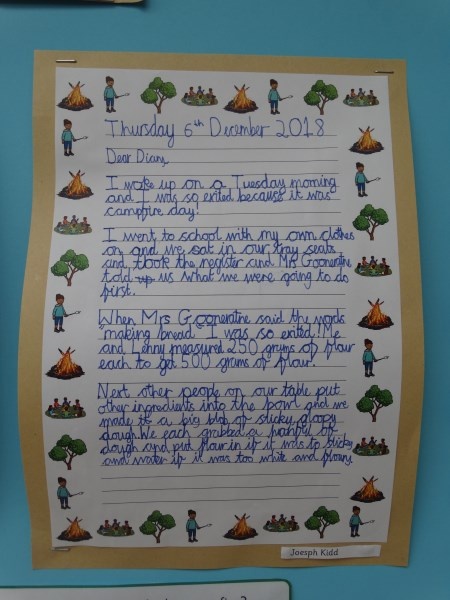 Thursday 6th December 2018
Dear Diary,
I woke up on a Tuesday morning
and I was so exited because it was
campfire day!
I went to school with my own clothes
on and we sat in our tray seats
and took the register and Mrs Gooneratne
told us what we were going to do
first.
When Mrs Gooneratne said the words
"making bread" I was so exited! Me
and Lenny measured 250 grams of flour
each to get 500 grams of flour.
Next other people on our table put
other ingredients into the bowl and we
made it a big blob of sticky gloopy
dough. We each grabbed a handful of
dough and put flour in if it was to sticky
and water if it was too white and floury.
Joesph Kidd